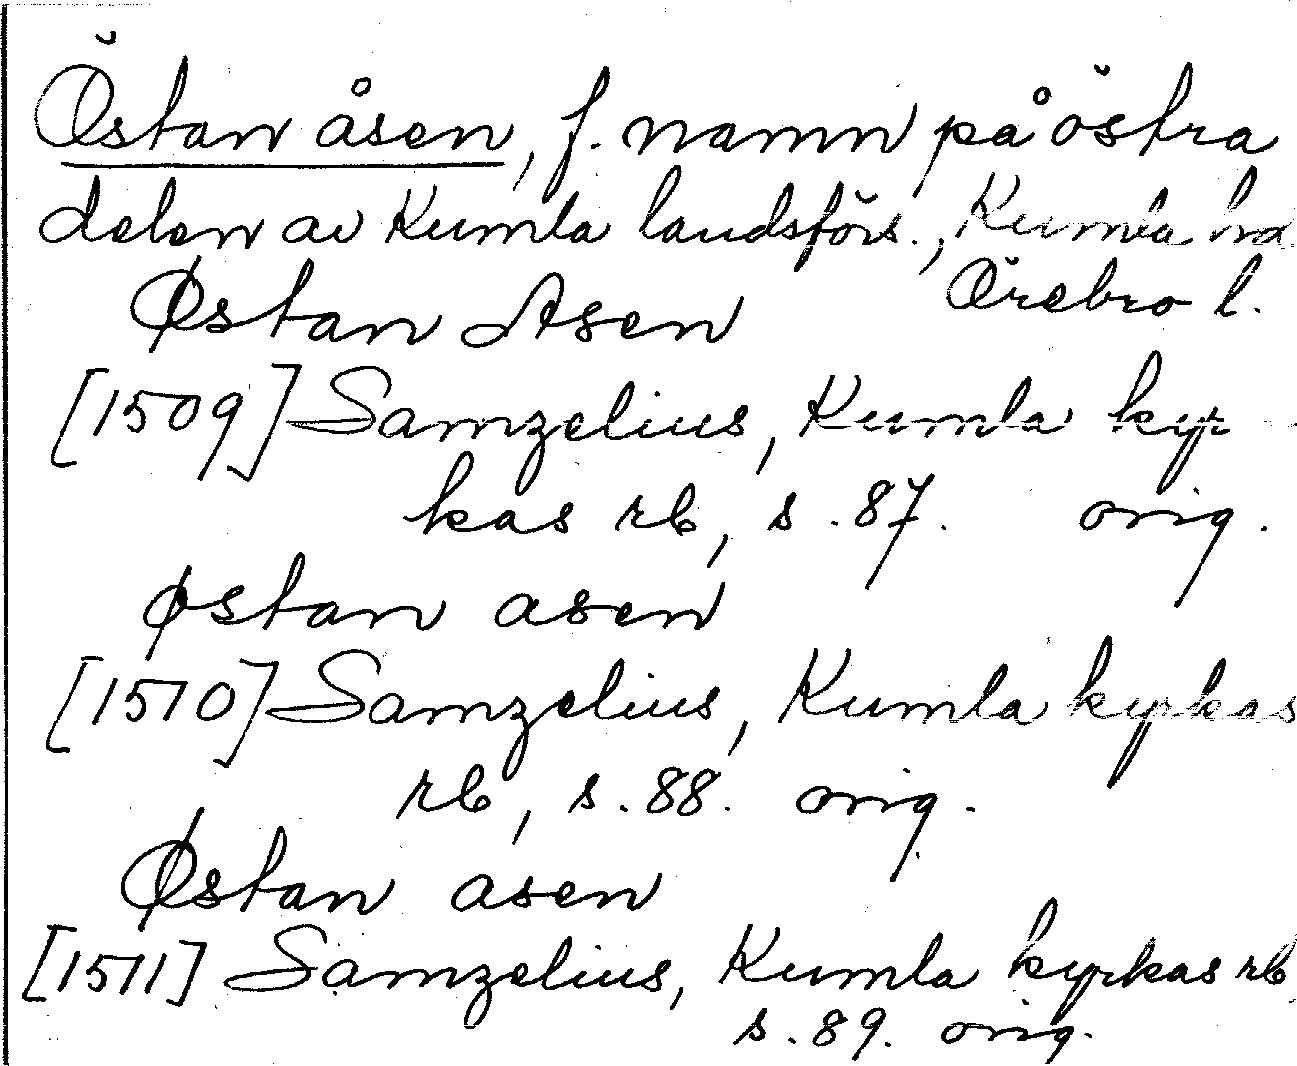 Östan åsen, f. namn på östra
delen av Kumla landsförs., Kumla hd
Örebro l.
Østan Asen
[1509] Samzelius, Kumla kyr
kas rb, s. 87. orig.
østan asen
[1510] Samzelius, Kumla kyrkas
rb, s. 88. orig.
Østan asen
[1511] Samzelius, Kumla kyrkas rb
s. 89. orig.